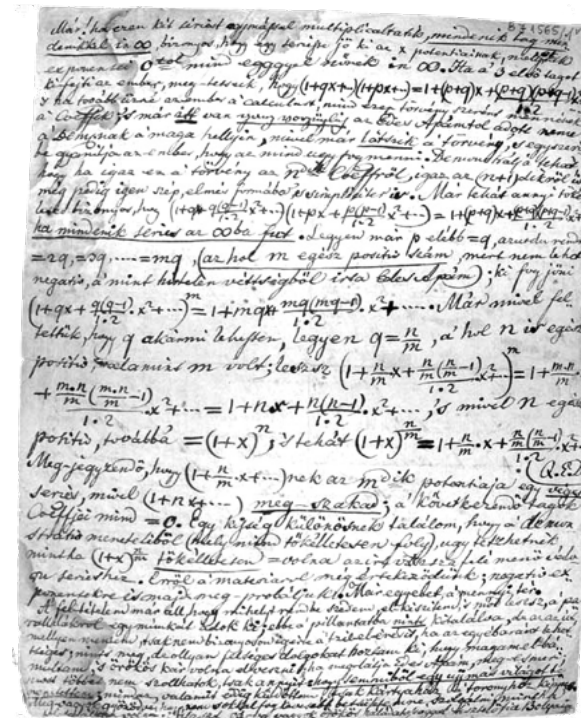 Már! ha ezen két seriest egymással multiplicáltatik, mindenik tag min
denikkel in ∞, bizonyos, hogy egy series jő ki az x potentiainak, melyek
exponensei 0tól mind eggyel nőnek in ∞. Ha a 3 első tagot
ki fejti az ember, meg-tetszik, hogy (1+qx+..)(1+px+..)=1+(p+q)x+(p+q)(p+q-1)/1·2
's ha tovább űzné az ember a calculust, mind ezen törvény szerint mennének
a Coeffek; 's már itt van az Édes Apámtól adott neme
a a maga helyén, mivel már látszik a törvény, 's egyszeri
be az ember, hogy az mind úgy fog menni. Demonstrálja tehát
hogy ha igaz ez a törvény az n Coeffről, igaz az (n+1)dikről is
még pedig igen szép, elmés formába 's simpliciter is. Már tehát annyi töké
letes bizonyos, hogy (1+qx+q(q-1)/1·2 x²+..)(1+px+p(p-1)/1·2 x²+..)=1+(p+q)x+
ha mindenik series az ∞ba fut. Legyen már p elébb =q, azután rendre
=2q,=3q,....=mq, (az hol m egész positiv szám, mert nem lehet
negativ, a mint hertelen vettségből írta Édes Apám); ki fog jőni
(1+qx+q(q-1)/1·2 x²+...)^m=1+mqx+mq(mq-1)/1·2 x²+.... Már mivel fel
tettük, hogy q akármi lehessen, legyen q=n/m, a' hol n is egész
positiv, valamint m volt; leszsz (1+n/m x+n/m(n/m-1)/1·2 x²+..)^m=1+m·n/m
+m·n/m(m·n/m-1)/1·2 x²+...=1+n·x+n(n-1)/1·2 x²+..., 's mivel n egész
positiv, továbbá =(1+x)^n; 's tehát (1+x)^n/m=1+n/m·x+n/m(n/m-1)/1·2 x²+..
(Q.E.D.
Meg-jegyzendő, hogy (1+n/m x+...)nek az m dik potentiája egy véges
series, mivel (1+nx+...) meg-szakad; a' következendő tagok
Coeffjei mind =0. Egy kisség különösnek találom, hogy a' demon
stratio meneteliből (mely mind tökélletesen foly), úgy tetszhetnék
mintha (1+x)^n/m tökélletesen =volna az
on serieshez. Erről a' materiáról még értekeződünk; negativ ex
ponensekre is majd meg-próbáljuk. Már egyebet a' mennyi tér.
A' fel-tételem már áll, hogy mihelyt rendbe szedem, el-készítem, 's mód lesz, a' pa
rallelákról egy munkát adok ki; ebbe a' pillantatba nints kitalálva, de az az út
mellyen mentem, tsak nem bizonyoson igérte a' tzél el-érését, ha az egyébaránt lehet
séges; nints meg, de ollyan felséges dolgokat hoztam ki, hogy magam el-bá
multam, 's örökös kár volna el-veszni; ha meglátja Édes Apám, meg-esmeri;
most többet nem szóllhatok, tsak annyit: hogy semmiből egy új más világot te
remtettem; mind az, valamit eddig küldöttem, tsak kártyaház a' toronyhoz képest.